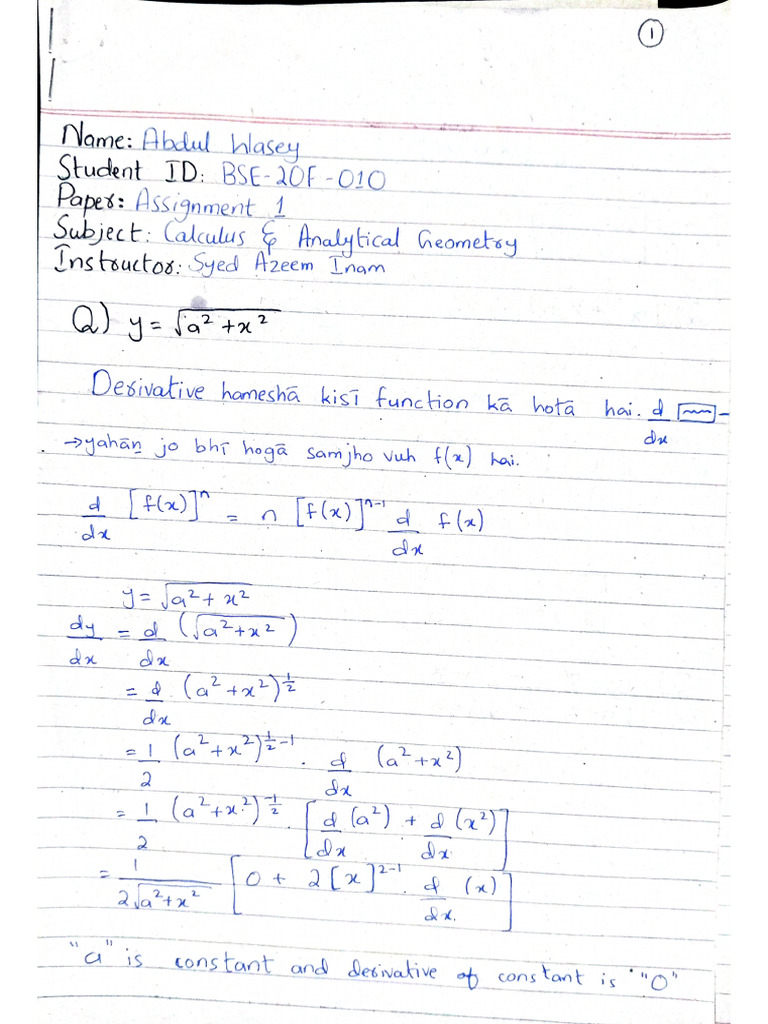 ①
Name: Abdul Wasey
Student ID: BSE-20F-010
Paper: Assignment 1
Subject: Calculus & Analytical Geometry
Instructor: Syed Azeem Inam
Q) y = √(a² + x²)
Derivative hameshā kisī function kā hotā hai. d/dx [~~~] -
→ yahāṉ jo bhī hogā samjho vuh f(x) hai.
d/dx [f(x)]ⁿ = n [f(x)]ⁿ⁻¹ d/dx f(x)
y = √(a² + x²)
dy/dx = d/dx (√(a² + x²))
= d/dx (a² + x²)^(1/2)
= 1/2 (a² + x²)^(1/2 - 1) . d/dx (a² + x²)
= 1/2 (a² + x²)^(-1/2) . [d/dx (a²) + d/dx (x²)]
= 1/(2√(a² + x²)) [0 + 2[x]^(2-1) . d/dx (x)]
"a" is constant and derivative of constant is "0"